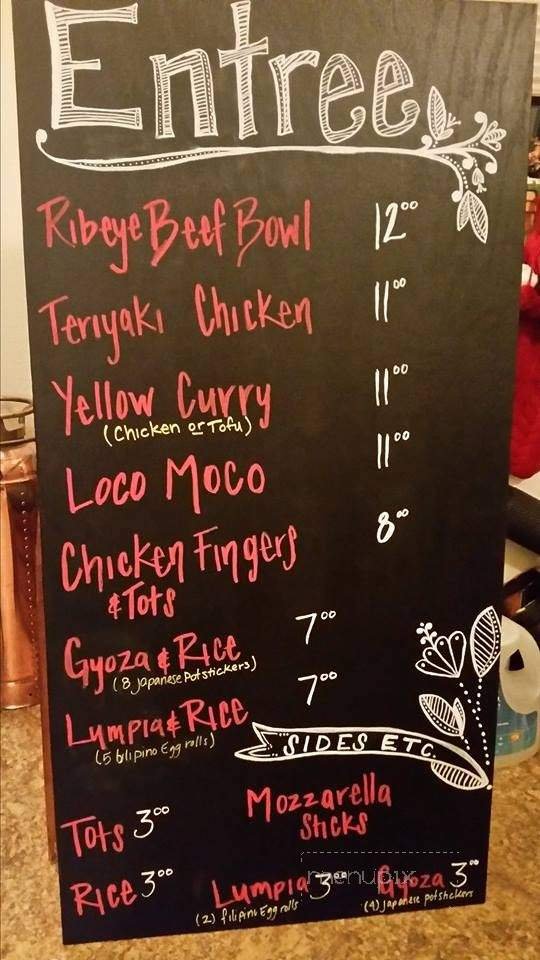 Entree
Ribeye Beef Bowl 12⁰⁰
Teriyaki Chicken 11⁰⁰
Yellow Curry 11⁰⁰
(Chicken or Tofu)
Loco Moco 11⁰⁰
Chicken Fingers 8⁰⁰
& Tots
Gyoza & Rice 7⁰⁰
(8 Japanese Potstickers)
Lumpia & Rice 7⁰⁰
(5 filipino Egg rolls)
SIDES ETC.
Mozzarella
Sticks
Tots 3⁰⁰
Rice 3⁰⁰
Lumpia 3⁰⁰
(2) filipino Egg rolls
Gyoza 3⁰⁰
(4) Japanese potstickers
menupix